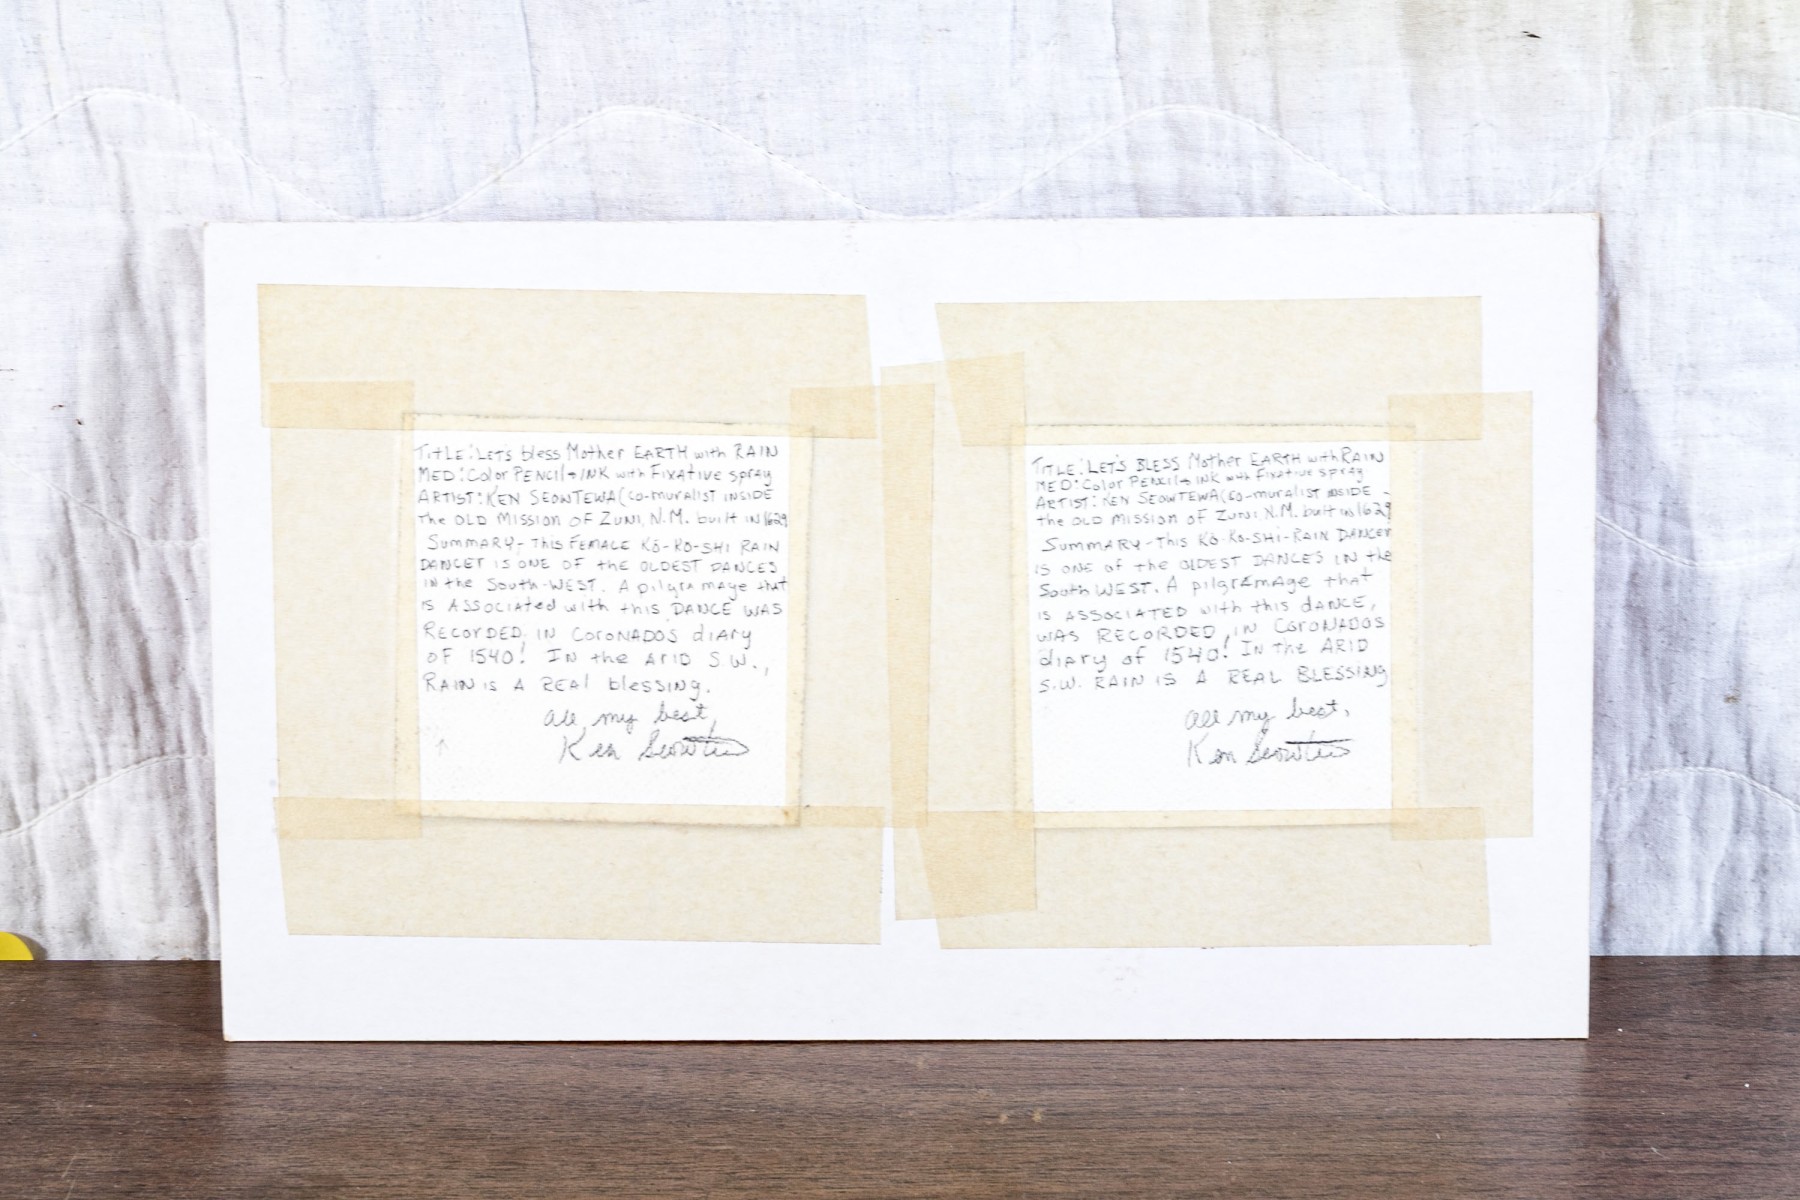 TITLE: LET'S bless Mother EARTH with RAIN
MED: Color PENCIL + INK with Fixative spray
ARTIST: KEN SEOWTEWA (co-muralist INSIDE
the OLD MISSION OF ZUNI, N.M. built IN 1629
SUMMARY - THIS FEMALE KŌ-KO-SHI RAIN
DANCER IS ONE OF the OLDEST DANCES
IN the South-WEST. A pilgramage that
IS ASSOCIATED with this DANCE WAS
RECORDED, IN CORONADOS diary
OF 1540! IN the ARID S.W.,
RAIN IS A REAL blessing.
all my best,
Ken Seowtewa
TITLE: LET'S BLESS Mother EARTH with RAIN
MED: Color PENCIL + INK with Fixative spray
ARTIST: KEN SEOWTEWA (co-muralist INSIDE
the OLD MISSION OF ZUNI, N.M. built IN 1629
SUMMARY - THIS KŌ-KO-SHI-RAIN DANCER
IS ONE of the OLDEST DANCES IN the
South WEST. A pilgramage that
IS ASSOCIATED with this dANCE,
WAS RECORDED, IN CORONADOS
diary of 1540! IN the ARID
S.W. RAIN IS A REAL BLESSING
all my best,
Ken Seowtewa